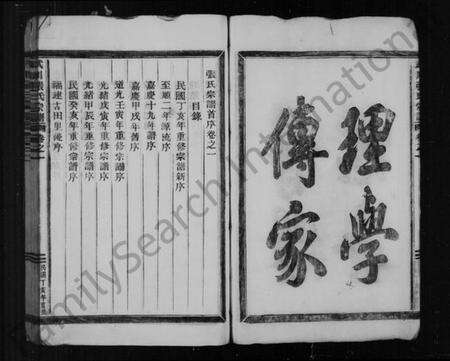 理學
傳家
張氏宗譜首序卷之一
目錄
民國丁亥年重修宗譜新序
至順二年源流序
嘉慶十九年譜序
嘉慶甲戌年舊序
道光壬寅年重修宗譜序
光緒甲辰年重修宗譜序
民國癸亥年重修宗譜序
福建古田里後序
FamilySearch International